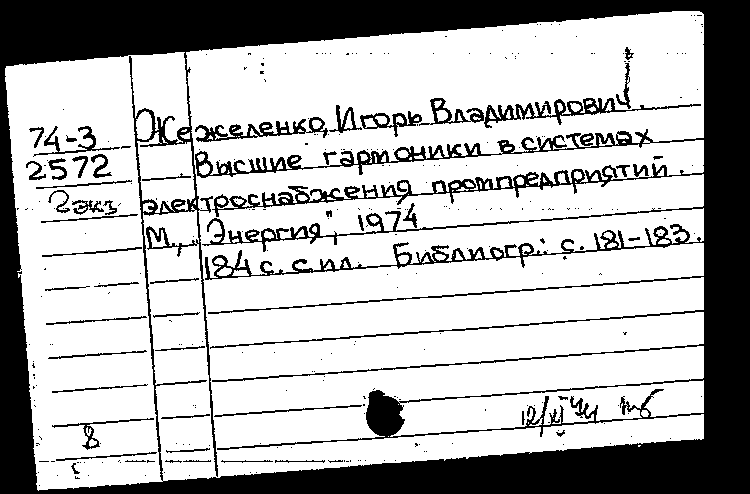 74-3 Жежеленко, Игорь Владимирович.
2572 Высшие гармоники в системах
2 экз электроснабжения промпредприятий.
М., "Энергия", 1974
184 с. с ил. Библиогр.: с. 181-183.
8
12/XI 74